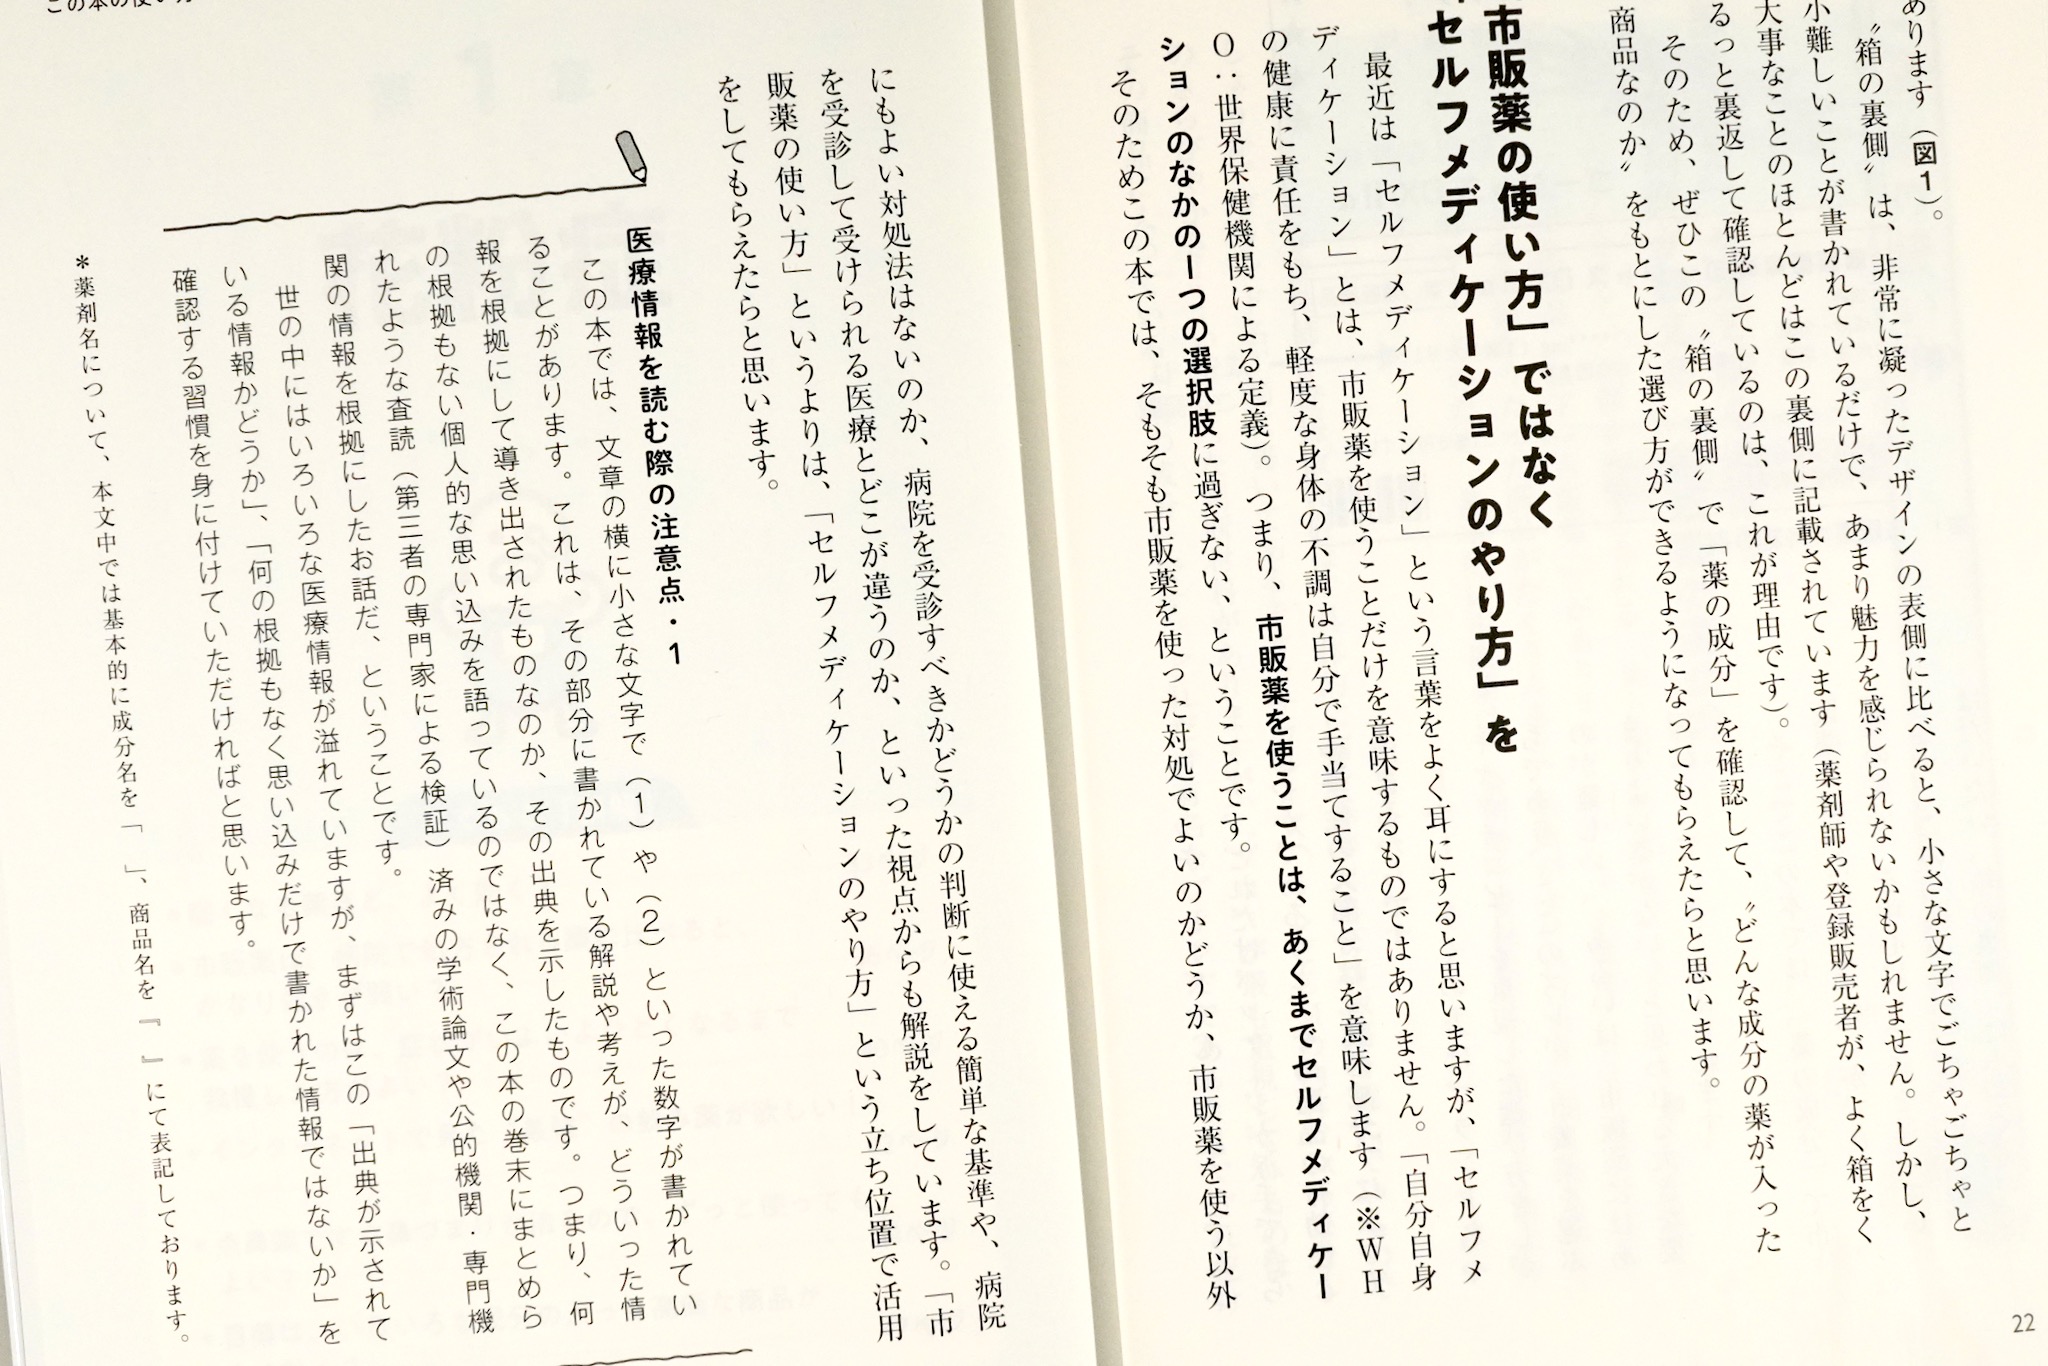 あります（図1）。
〝箱の裏側〟は、非常に凝ったデザインの表側に比べると、小さな文字でごちゃごちゃと
小難しいことが書かれているだけで、あまり魅力を感じられないかもしれません。しかし、
大事なことのほとんどはこの裏側に記載されています（薬剤師や登録販売者が、よく箱をく
るっと裏返して確認しているのは、これが理由です）。
そのため、ぜひこの〝箱の裏側〟で「薬の成分」を確認して、〝どんな成分の薬が入った
商品なのか〟をもとにした選び方ができるようになってもらえたらと思います。
市販薬の使い方」ではなく
「セルフメディケーションのやり方」を
最近は「セルフメディケーション」という言葉をよく耳にすると思いますが、「セルフメ
ディケーション」とは、市販薬を使うことだけを意味するものではありません。「自分自身
の健康に責任をもち、軽度な身体の不調は自分で手当てすること」を意味します（※WH
O：世界保健機関による定義）。つまり、市販薬を使うことは、あくまでセルフメディケー
ションのなかの一つの選択肢に過ぎない、ということです。
そのためこの本では、そもそも市販薬を使った対処でよいのかどうか、市販薬を使う以外
22
この本の使い方
にもよい対処法はないのか、病院を受診すべきかどうかの判断に使える簡単な基準や、病院
を受診して受けられる医療とどこが違うのか、といった視点からも解説をしています。「市
販薬の使い方」というよりは、「セルフメディケーションのやり方」という立ち位置で活用
をしてもらえたらと思います。
医療情報を読む際の注意点・1
この本では、文章の横に小さな文字で（1）や（2）といった数字が書かれてい
ることがあります。これは、その部分に書かれている解説や考えが、どういった情
報を根拠にして導き出されたものなのか、その出典を示したものです。つまり、何
の根拠もない個人的な思い込みを語っているのではなく、この本の巻末にまとめら
れたような査読（第三者の専門家による検証）済みの学術論文や公的機関・専門機
関の情報を根拠にしたお話だ、ということです。
世の中にはいろいろな医療情報が溢れていますが、まずはこの「出典が示されて
いる情報かどうか」、「何の根拠もなく思い込みだけで書かれた情報ではないか」を
確認する習慣を身に付けていただければと思います。
＊薬剤名について、本文中では基本的に成分名を「　」、商品名を『　』にて表記しております。